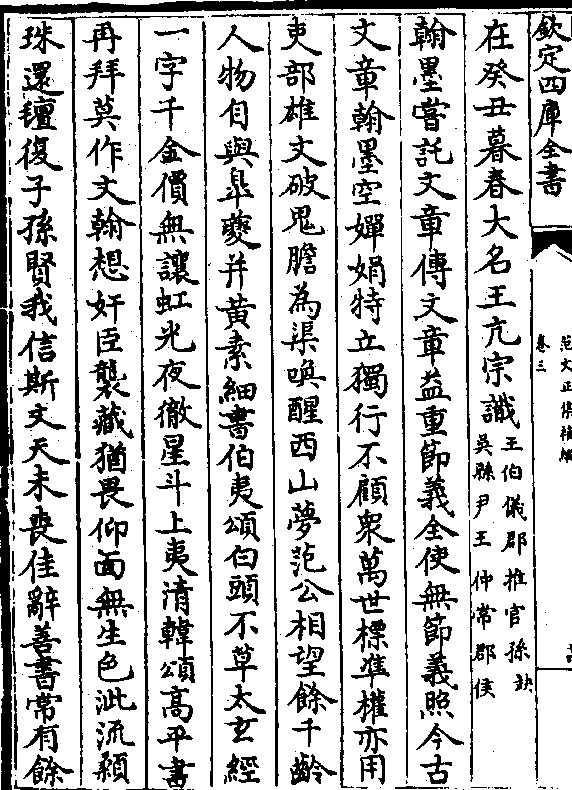 欽定四庫全書
范文正集補編
卷三
在癸丑暮春大名王亢宗識
王伯儀郡推官孫缺
吳縣尹王仲常郡侯
翰墨嘗託文章傳文章益重節義全使無節義照今古
文章翰墨空嬋娟特立獨行不顧衆萬世標準權亦用
吏部雄文破鬼膽為渠喚醒西山夢范公相望餘千齡
人物自與臯夔并黄素細書伯夷頌白頭不草太玄經
一字千金價無讓虹光夜徹星斗上夷清韓頌高平書
再拜莫作文翰想奸臣襲藏猶畏仰面無生色泚流顙
珠還㲲復子孫賢我信斯文天未喪佳辭善書常有餘